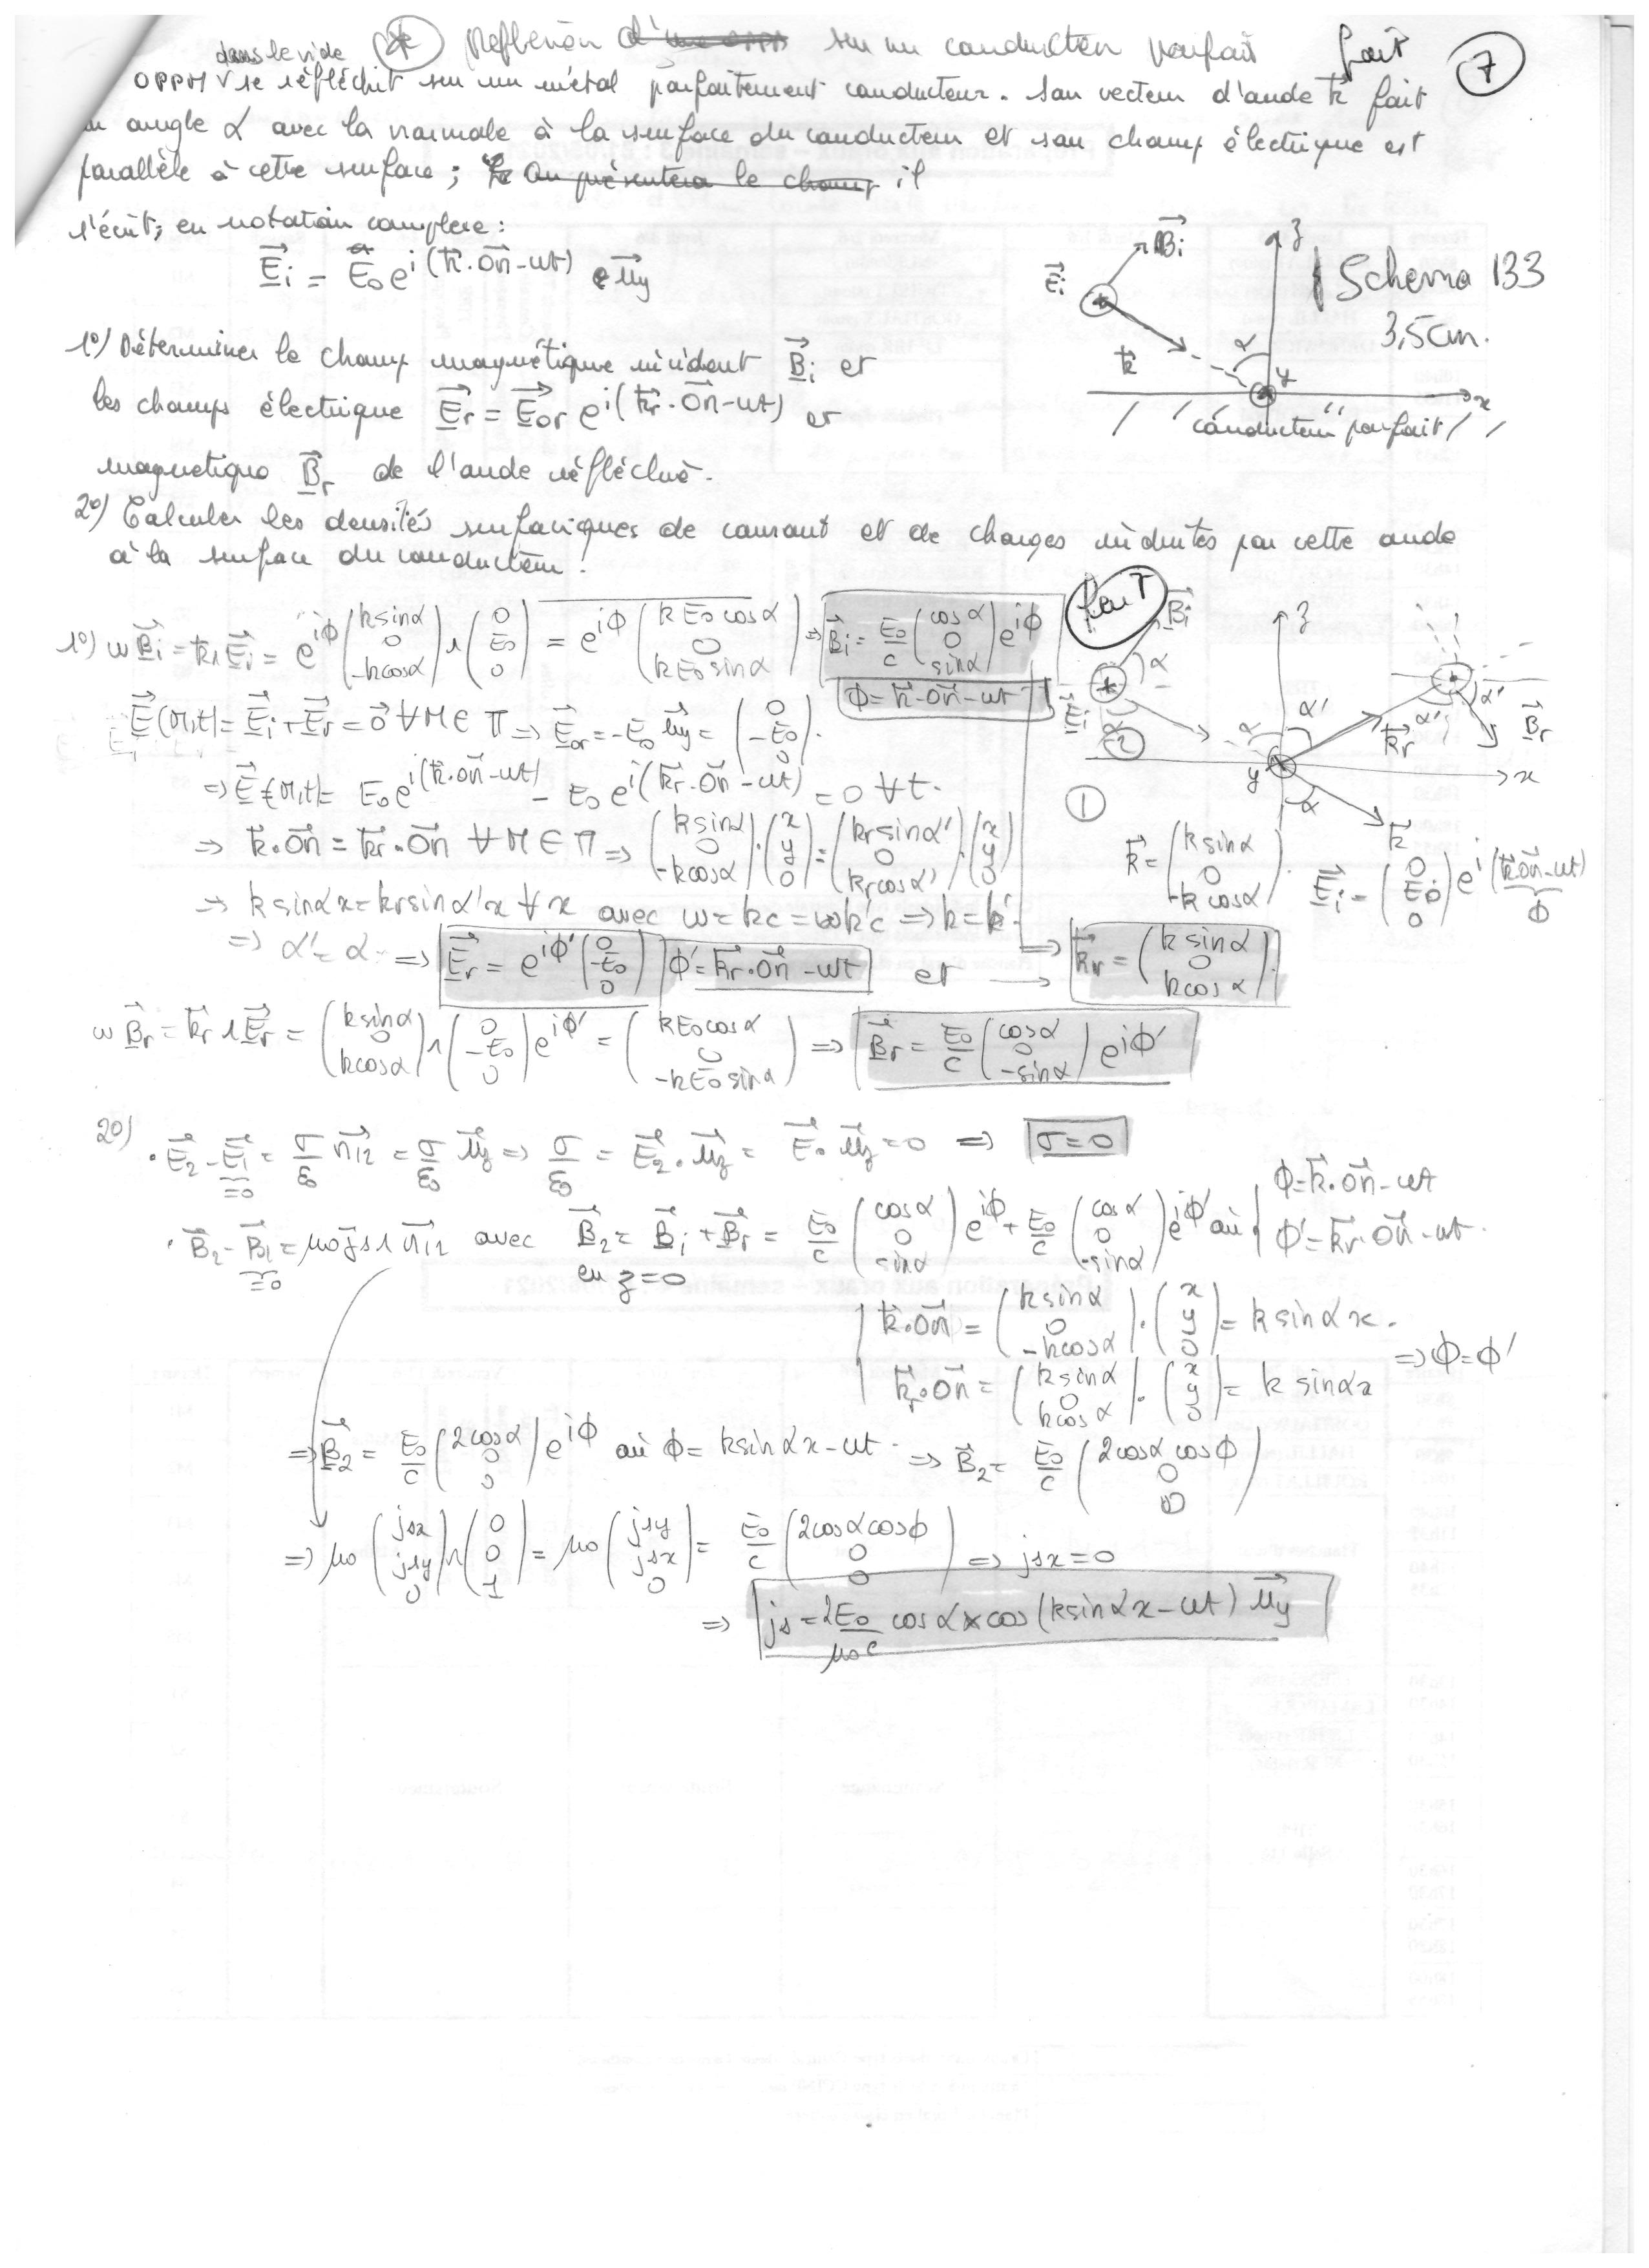 dans le vide * Réflexion d'une OPPM sur un conducteur parfait fait 7
OPPM se réfléchit sur un métal parfaitement conducteur. Son vecteur d'onde k⃗ fait
un angle α avec la normale à la surface du conducteur et son champ électrique est
parallèle à cette surface; On présentera le champ il
s'écrit, en notation complexe :
E⃗i = E0 e^i(k⃗.OM⃗-ωt) u⃗y
B⃗i z E⃗i Schema 133
3,5cm.
α k⃗ y x
conducteur parfait
1°) Déterminer le champ magnétique incident B⃗i et
les champs électrique E⃗r = E⃗0r e^i(k⃗r.OM⃗-ωt) et
magnetique B⃗r de l'onde réfléchie.
2°) Calculer les densités surfaciques de courant et de charges induites par cette onde
à la surface du conducteur.
fait
1°) ωB⃗i = k⃗∧E⃗i = e^iϕ (ksinα 0 -kcosα) ∧ (0 E0 0) = e^iϕ (kE0cosα 0 kE0sinα) => B⃗i = E0/c (cosα 0 sinα) e^iϕ
ϕ = k⃗.OM⃗-ωt
B⃗i z α E⃗i α 2 α α' α' α' k⃗r B⃗r y x 1 α k⃗
E⃗(M,t) = E⃗i + E⃗r = 0⃗ ∀M∈π => E⃗0r = -E0 u⃗y = (0 -E0 0).
=> E⃗(M,t) = E0 e^i(k⃗.OM⃗-ωt) - E0 e^i(k⃗r.OM⃗-ωt) = 0 ∀t.
=> k⃗.OM⃗ = k⃗r.OM⃗ ∀M∈π => (ksinα 0 -kcosα).(x y 0) = (krsinα' 0 krcosα').(x y 0)
k⃗ = (ksinα 0 -kcosα). E⃗i = (0 E0 0) e^i(k⃗.OM⃗-ωt) ϕ
=> ksinαx = krsinα'x ∀x avec ω = kc = ωk'c => k=k'.
=> α' = α => E⃗r = e^iϕ' (0 -E0 0) ϕ' = k⃗r.OM⃗-ωt et → k⃗r = (ksinα 0 kcosα).
ωB⃗r = k⃗r∧E⃗r = (ksinα 0 kcosα) ∧ (0 -E0 0) e^iϕ' = (kE0cosα 0 -kE0sinα) => B⃗r = E0/c (cosα 0 -sinα) e^iϕ'
2°)
• E⃗2 - E⃗1 = σ/ε0 n⃗12 = σ/ε0 u⃗z => σ/ε0 = E⃗2.u⃗z = E⃗.u⃗z = 0 => σ=0
=0
• B⃗2 - B⃗1 = μ0 j⃗s∧n⃗12 avec B⃗2 = B⃗i + B⃗r = E0/c (cosα 0 sinα) e^iϕ + E0/c (cosα 0 -sinα) e^iϕ' où ϕ = k⃗.OM⃗-ωt ϕ' = k⃗r.OM⃗-ωt.
=0 en z=0
k⃗.OM⃗ = (ksinα 0 -kcosα).(x y 0) = ksinαx.
=> ϕ=ϕ'
k⃗r.OM⃗ = (ksinα 0 kcosα).(x y 0) = ksinαx
=> B⃗2 = E0/c (2cosα 0 0) e^iϕ où ϕ = ksinαx-ωt. => B⃗2 = E0/c (2cosαcosϕ 0 0)
=> μ0 (jsx jsy 0) ∧ (0 0 1) = μ0 (jsy jsx 0) = E0/c (2cosαcosϕ 0 0) => jsx = 0
=> js = 2E0/μ0c cosα x cos(ksinαx-ωt) u⃗y